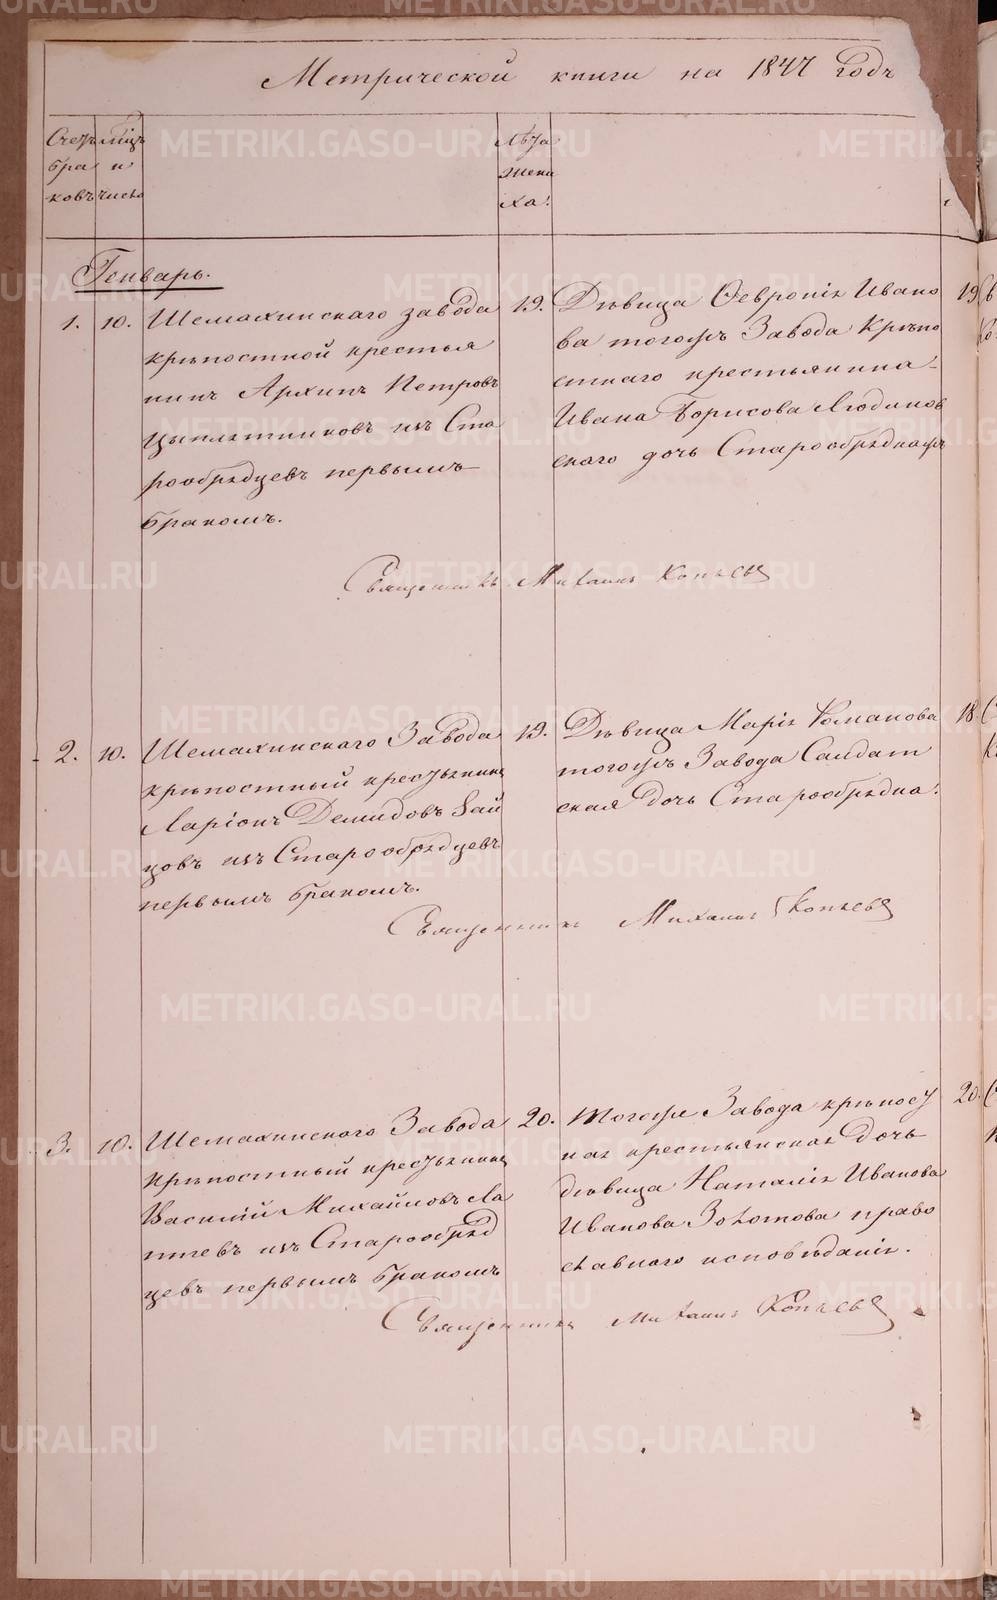 Метрической книги на 1847 годъ
Счетъ браковъ
Мѣцъ и число
Лѣта жениха:
Генварь.
1. 10.
Шемахинскаго завода
крѣпостной крестья
нинъ Архипъ Петровъ
Цыплятниковъ изъ Ста
рообрядцевъ первымъ
бракомъ.
19.
Дѣвица Февронія Ивано
ва тогожъ Завода Крѣпо
стнаго крестьянина
Ивана Борисова Людинов
скаго дочь Старообрядка
19
Священникъ Михаилъ Копьевъ
2. 10.
Шемахинскаго Завода
крѣпостный крестьянинъ
Ларіонъ Демидовъ Зай
цовъ изъ Старообрядцевъ
первымъ бракомъ.
19.
Дѣвица Марія Романова
тогожъ Завода Салдат
ская дочь Старообрядка:
18
Священникъ Михаилъ Копьевъ
3. 10.
Шемахинскаго Завода
Крѣпостный крестьянинъ
Василій Михайловъ Ла
птевъ изъ Старообряд
цевъ первымъ бракомъ
20.
Тогоже Завода крѣпост
ная крестьянская дочь
дѣвица Наталія Иванова
Иванова Золотова право
славнаго исповѣданія.
20.
Священникъ Михаилъ Копьевъ
METRIKI.GASO-URAL.RU